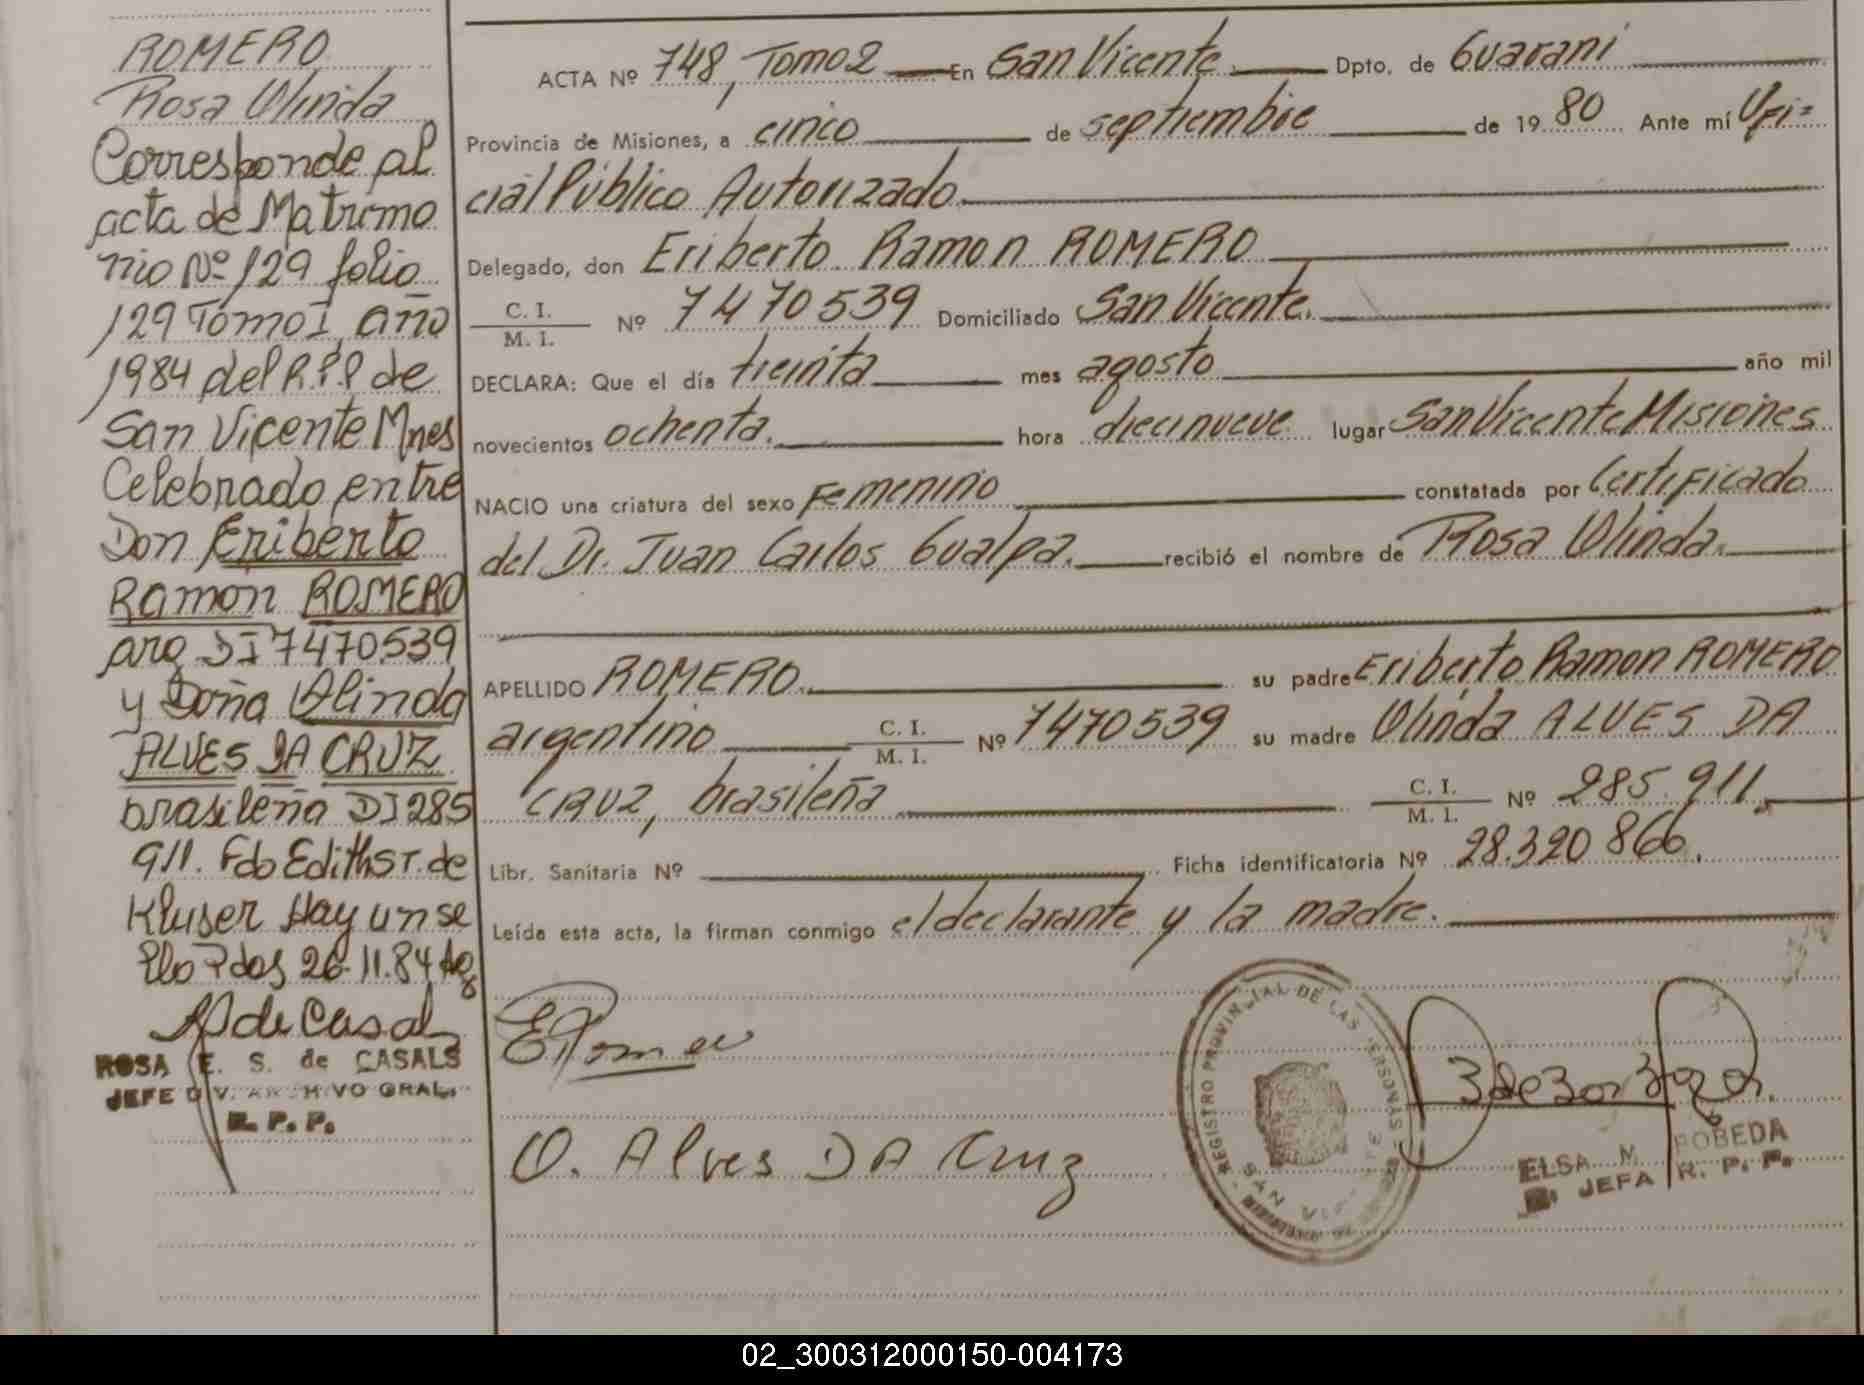 ROMERO
Rosa Olinda
Corresponde al
acta de Matrimo
nio Nº 129 folio
129 Tomo I año
1984 del R.P.P de
San Vicente Mnes
Celebrado entre
Don Eriberto
Ramon ROMERO
arg DI 7470539
y Doña Olinda
ALVES DA CRUZ
brasileña DI 285
911. Fdo Edith T. de
Kluser Hay un se
llo Pdas 26.11.84
ROSA E. S. de CASALS
JEFE DIV. ARCHIVO GRAL.
R. P. P.
ACTA Nº 748, Tomo 2 En San Vicente Dpto. de Guarani
Provincia de Misiones, a cinco de septiembre de 1980 Ante mí Ofi=
cial Público Autorizado
Delegado, don Eriberto Ramon ROMERO
C. I.
M. I. Nº 7470539 Domiciliado San Vicente.
DECLARA: Que el día treinta mes agosto año mil
novecientos ochenta. hora diecinueve lugar San Vicente Misiones
NACIO una criatura del sexo Femenino constatada por Certificado
del Dr. Juan Carlos Gualpa. recibió el nombre de Rosa Olinda.
APELLIDO ROMERO. su padre Eriberto Ramon ROMERO
argentino C. I.
M. I. Nº 7470539 su madre Olinda ALVES DA
CRUZ, brasileña C. I.
M. I. Nº 285.911.
Libr. Sanitaria Nº Ficha identificatoria Nº 28.320 866.
Leída esta acta, la firman conmigo el declarante y la madre.
O. Alves DA Cruz
REGISTRO PROVINCIAL DE LAS PERSONAS
SAN
ELSA M POBEDA
JEFA R. P. P.
02_300312000150-004173